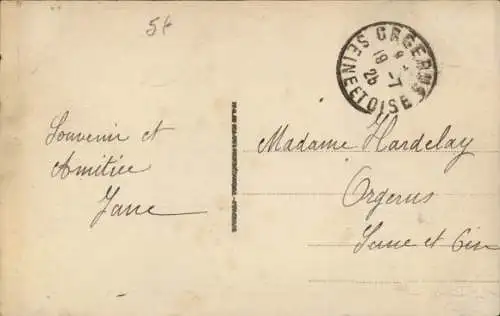 5f
ORGERUS
SEINE ET OISE
18
9-7
25
Souvenir et
Amitiée
Jane
Madame Hardelay
Orgerus
Seine et Oise